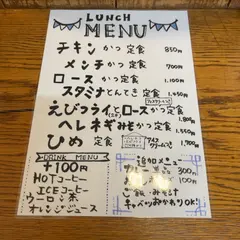 LUNCH
MENU
チキン かつ 定食 850円
メンチ かつ 定食 700円
ロース かつ 定食 1.100円
スタミナ とんてき 定食 1.450円
えびフライとロースかつ定食
ヘレネギみそかつ定食
ひめ 定食
DRINK MENU
+100円
HOTコーヒー
ICEコーヒー
ウーロン茶
オレンジジュース
追加メニュー
300円
100円
ご飯・みそ汁
キャベツおかわりOK!